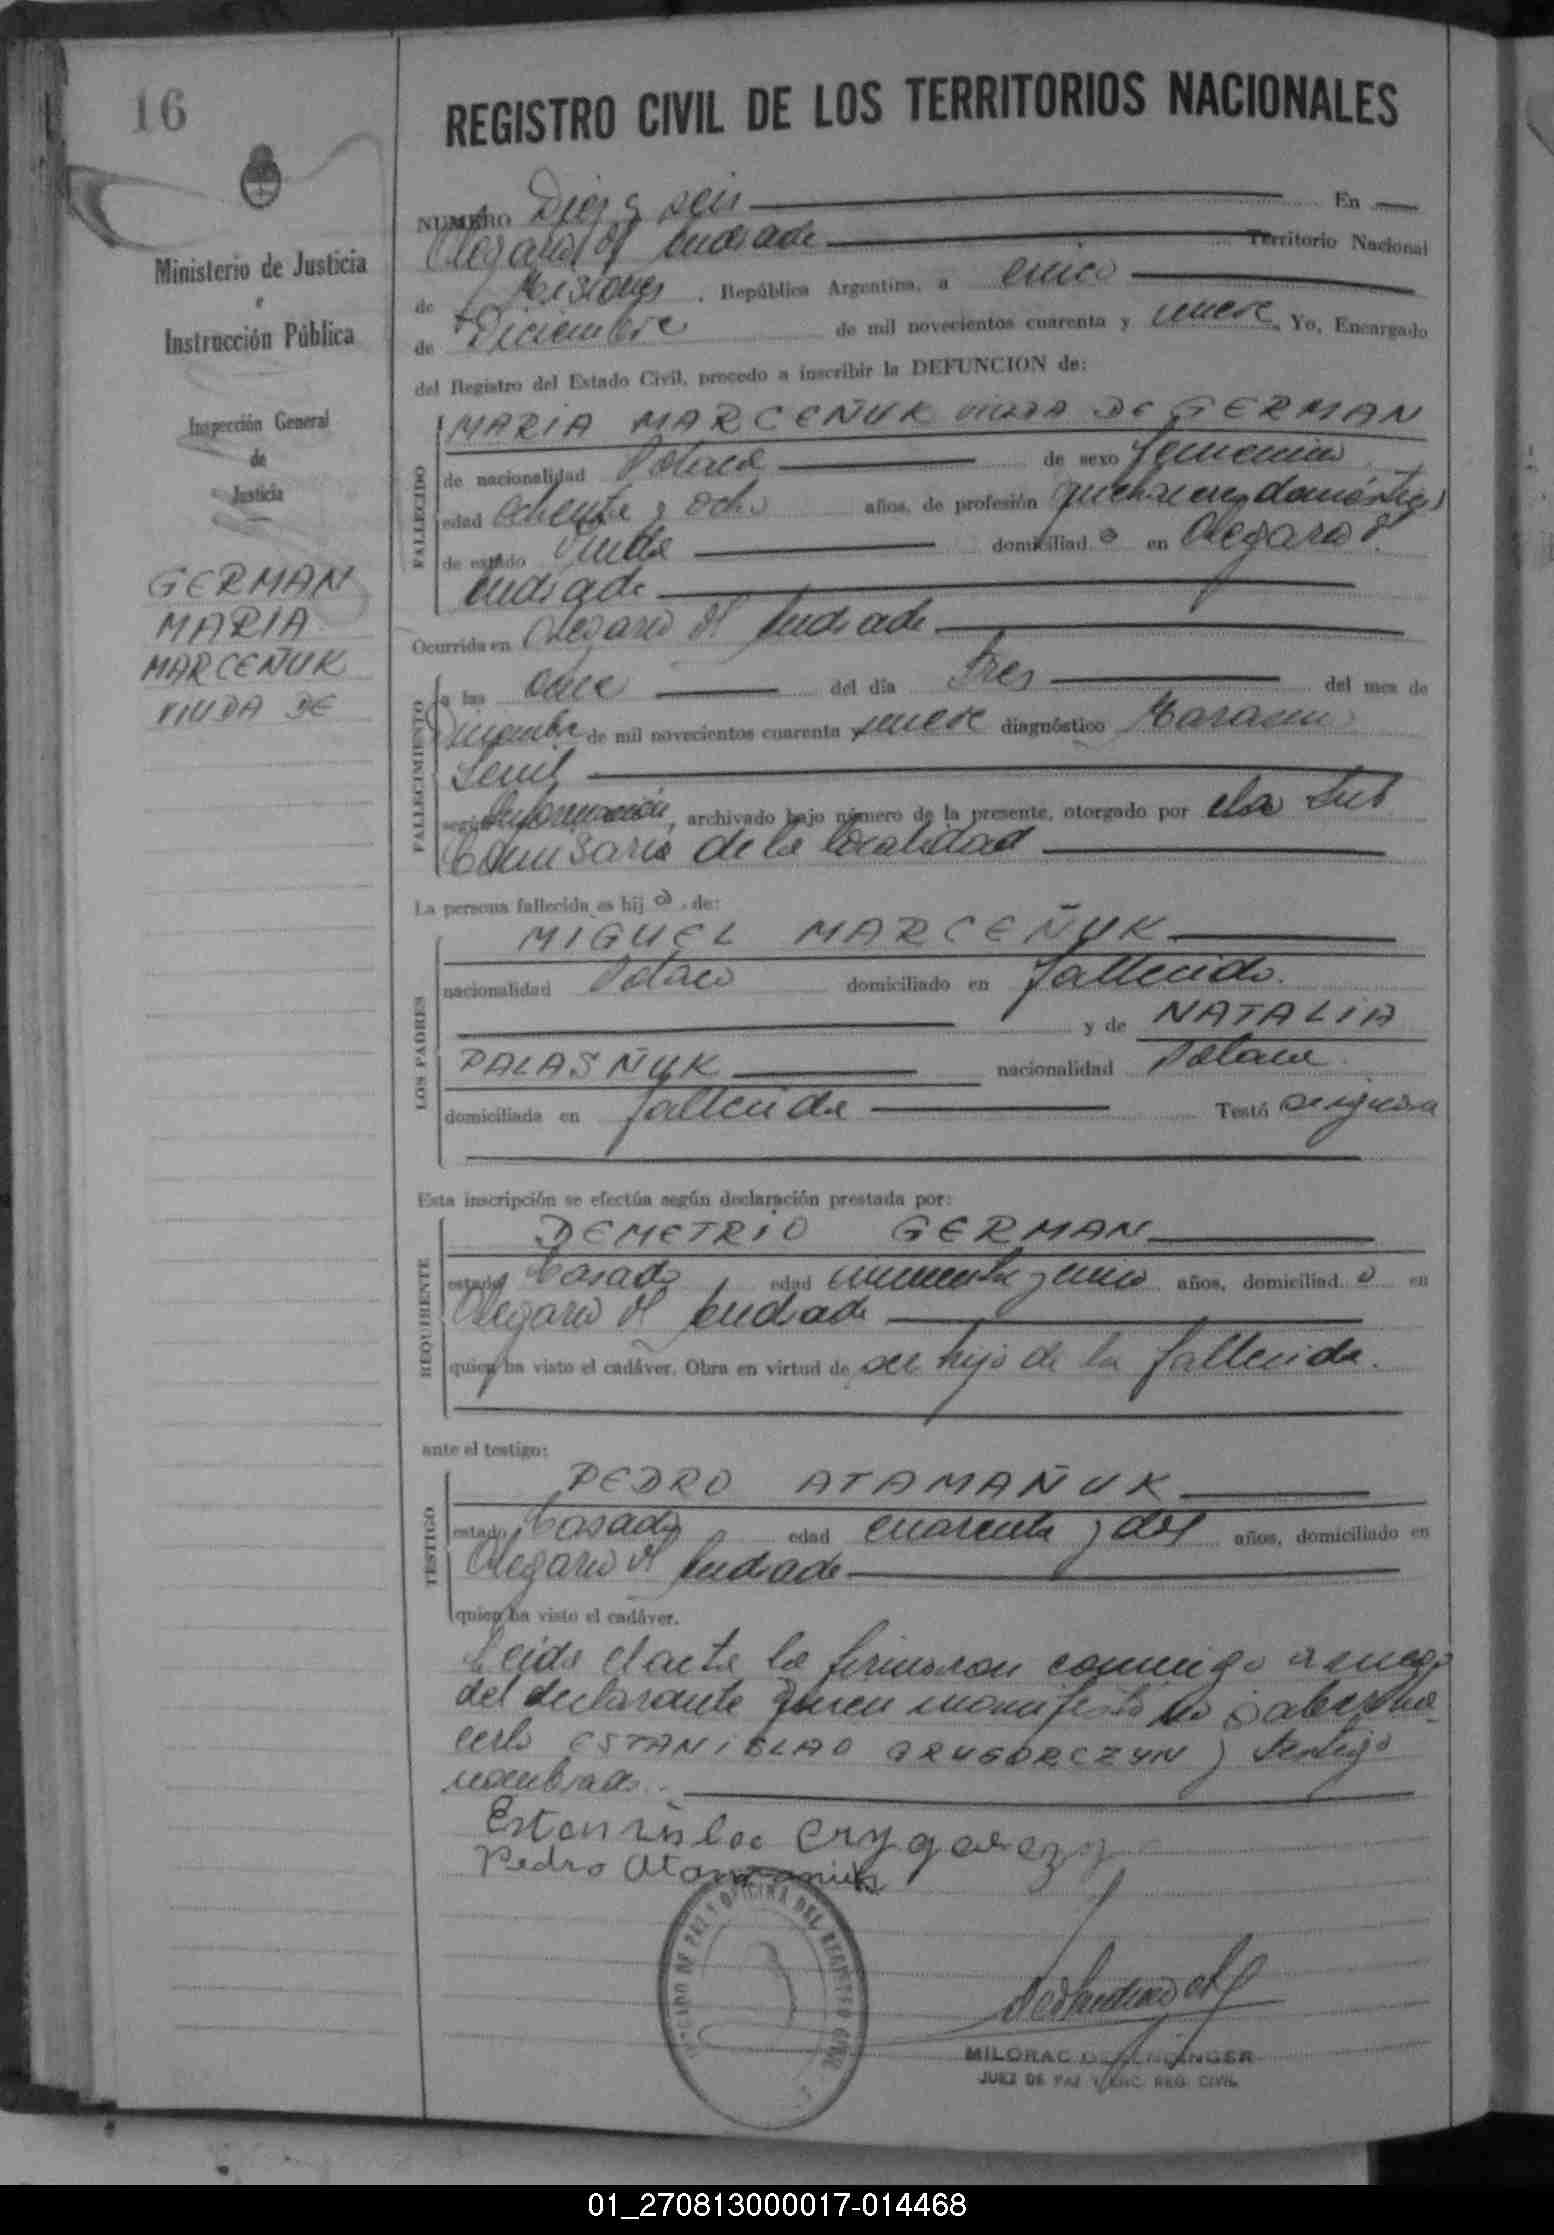 16
REGISTRO CIVIL DE LOS TERRITORIOS NACIONALES
Ministerio de Justicia
e
Instrucción Pública
Inspección General
de
Justicia
GERMAN
MARIA
MARCEÑUK
VIUDA DE
NUMERO Diez y seis En
Olegario V Andrade Territorio Nacional
de Misiones, República Argentina, a cinco
de Diciembre de mil novecientos cuarenta y nueve, Yo, Encargado
del Registro del Estado Civil, procedo a inscribir la DEFUNCION de:
FALLECIDO
MARIA MARCEÑUK VIUDA DE GERMAN
de nacionalidad Polaca de sexo femenino
edad ochenta y ocho años, de profesión quehaceres domésticos
de estado Viuda domiciliad a en Olegario V.
Andrade
Ocurrida en Olegario V Andrade
FALLECIMIENTO
a las once del día Tres del mes de
Diciembre de mil novecientos cuarenta y nueve diagnóstico Marasmo
Senil
según Información, archivado bajo número de la presente, otorgado por la Sub
Comisaria de la localidad
La persona fallecida es hij a, de:
LOS PADRES
MIGUEL MARCEÑUK
nacionalidad Polaco domiciliado en fallecido.
y de NATALIA
PALASÑUK nacionalidad Polaca
domiciliada en fallecida Testó se ignora
Esta inscripción se efectúa según declaración prestada por:
REQUIRENTE
DEMETRIO GERMAN
estado Casado edad cincuenta y cinco años, domiciliad o en
Olegario V Andrade
quien ha visto el cadáver. Obra en virtud de ser hijo de la fallecida.
ante el testigo:
TESTIGO
PEDRO ATAMAÑUK
estado Casado edad cuarenta y dos años, domiciliado en
Olegario V Andrade
quien ha visto el cadáver.
Leida el acta la firmaron conmigo a ruego
del declarante quien manifestó no saber ha-
cerlo ESTANISLAO GRUGORCZYN y testigo
nombrado.
Estanislao
Pedro
JUZGADO DE PAZ Y OFICINA DEL REGISTRO CIVIL
MILORAC
JUEZ DE PAZ Y ENC. REG. CIVIL
01_270813000017-014468